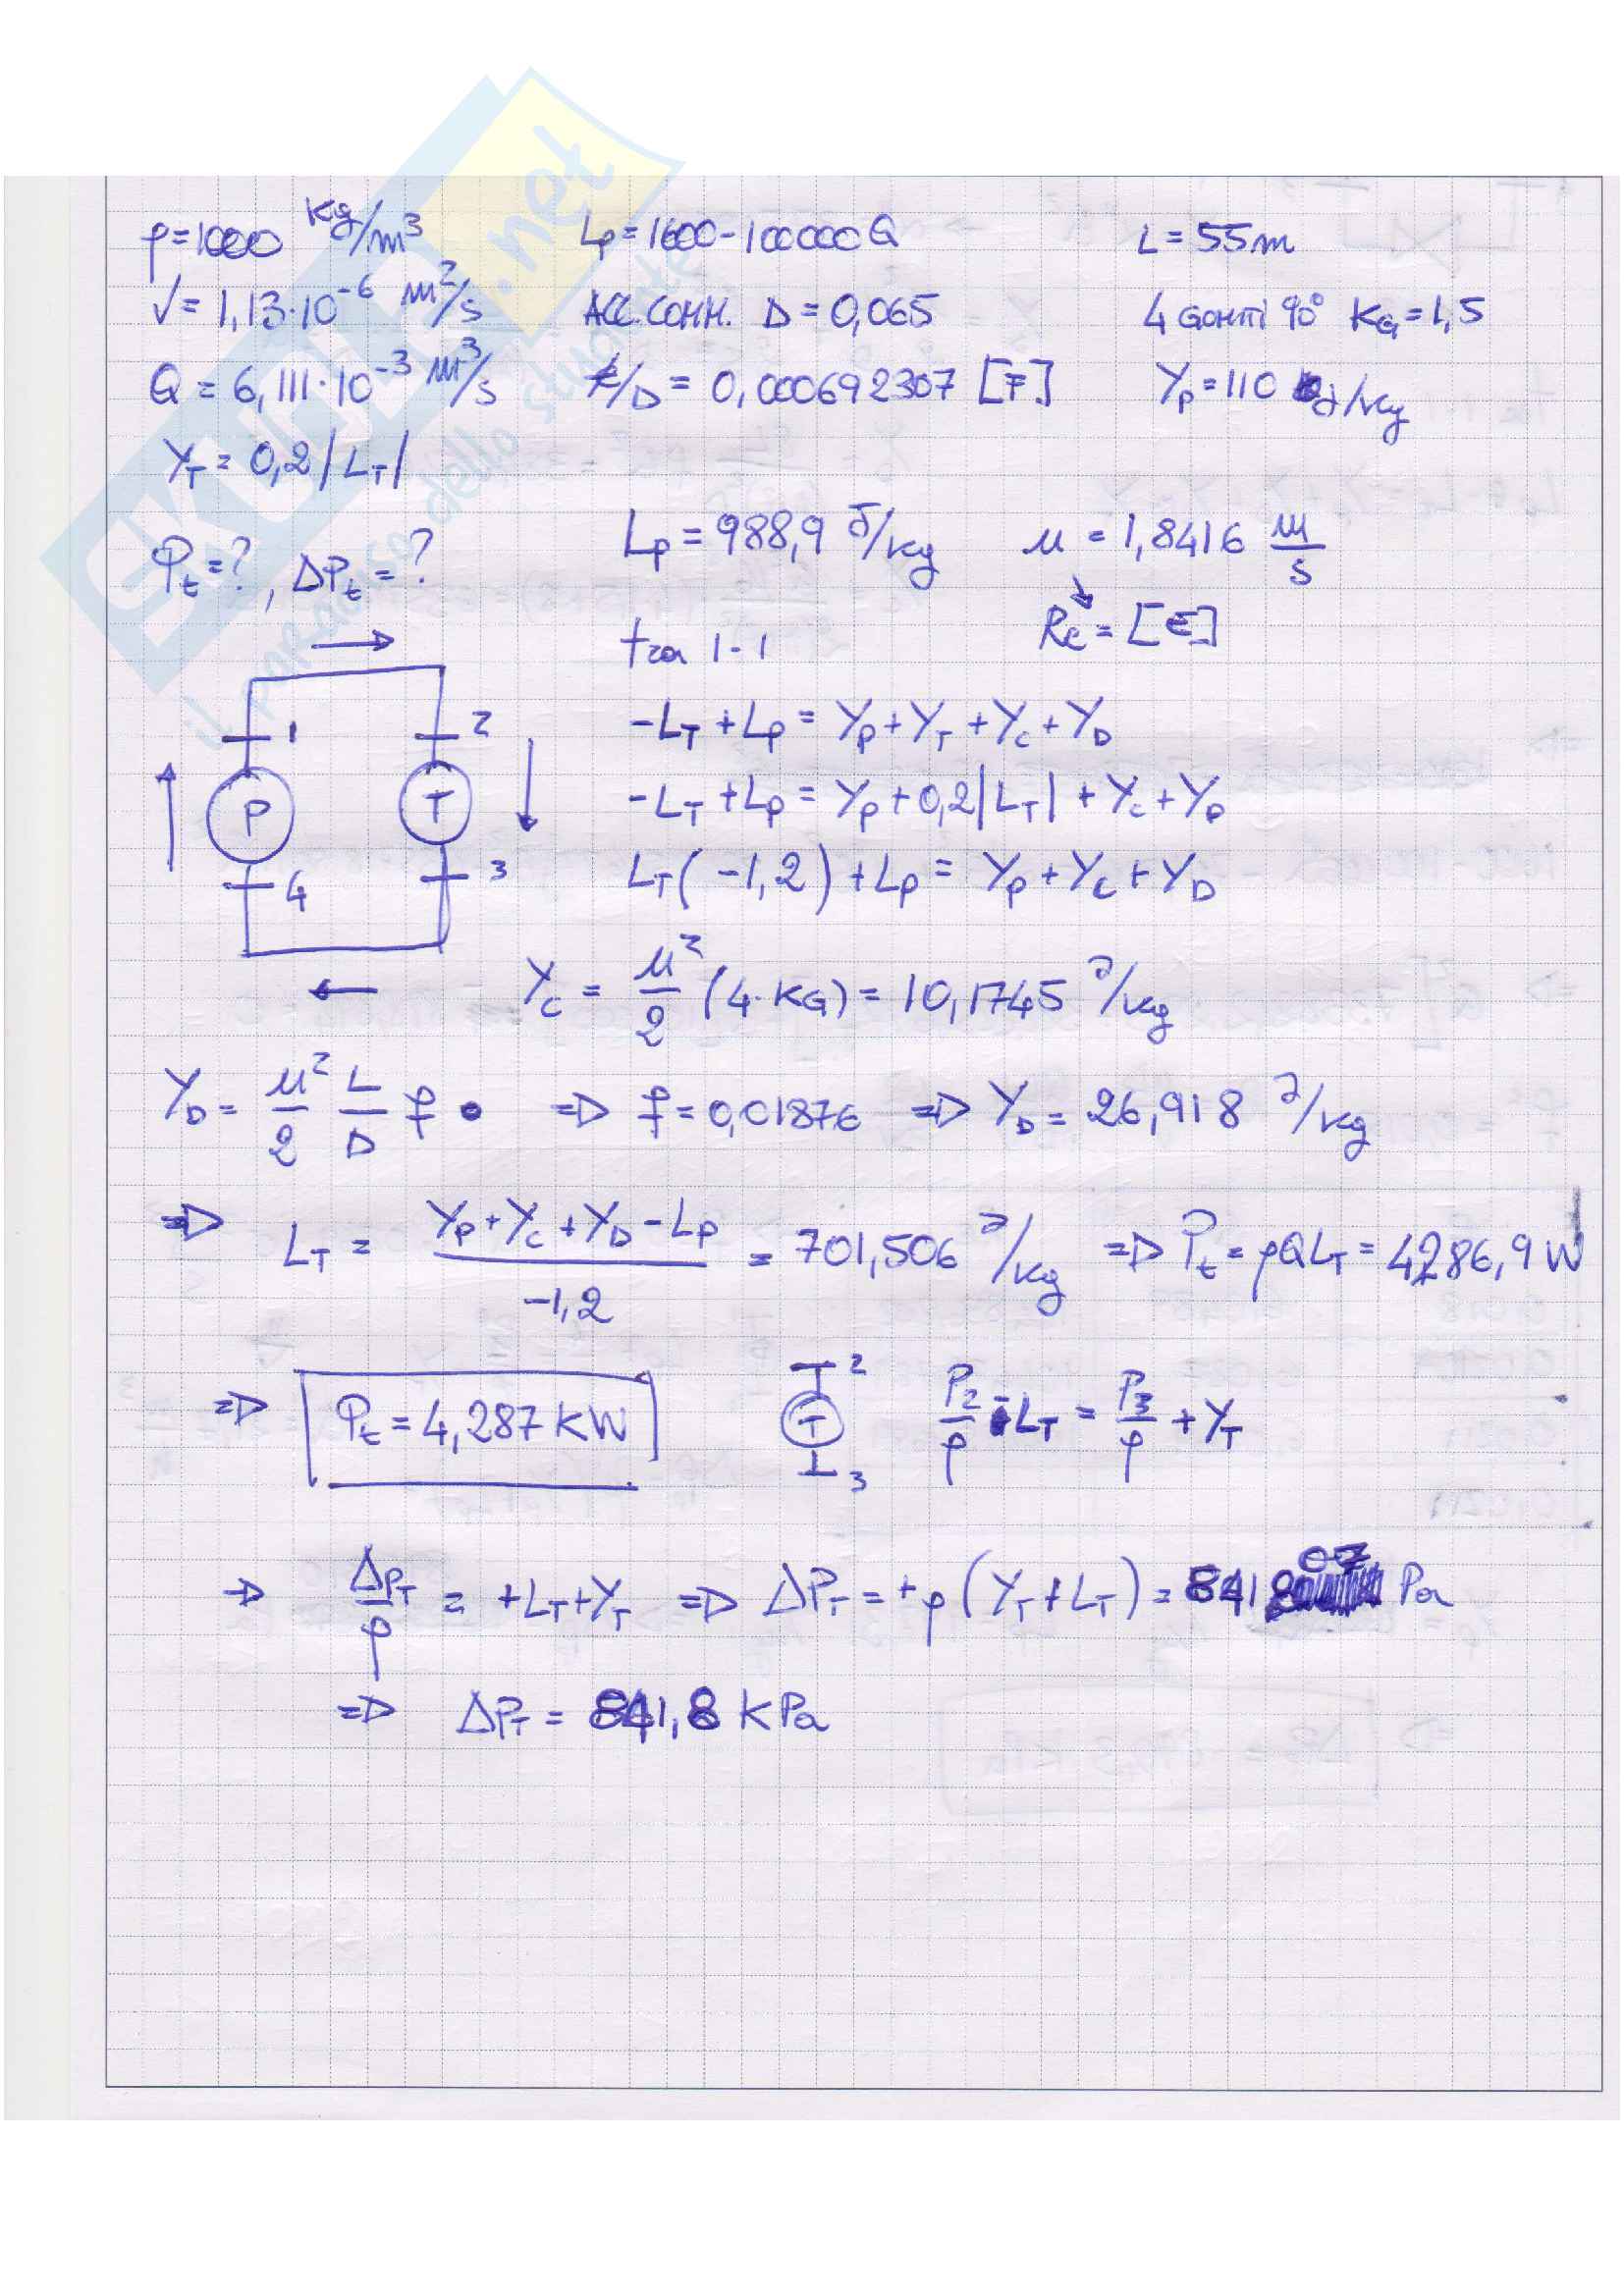 ρ=1000 Kg/m³ Lp=1600-100000Q L=55m
√=1,13·10⁻⁶ m²/s ACC.COMM. D=0,065 4 GOMITI 90° KG=1,5
Q=6,111·10⁻³ m³/s ε/D=0,000692307 [F] Yp=110 J/kg
YT=0,2|LT|
Pt=?, ΔPt=? Lp=988,9 J/kg u=1,8416 m/s
tra 1-1 Re=[E]
1 2
-LT+Lp=Yp+YT+Yc+YD
P T
-LT+Lp=Yp+0,2|LT|+Yc+Yp
4 3
LT(-1,2)+Lp=Yp+Yc+YD
Yc=u²/2 (4·KG)=10,1745 J/kg
YD=u²/2 L/D f • ⇒ f=0,01876 ⇒ YD=26,918 J/kg
⇒ LT=(Yp+Yc+YD-Lp)/-1,2=701,506 J/kg ⇒ Pt=ρQLT=4286,9 W
⇒ Pt=4,287 KW T 2 3 P2/ρ-LT=P3/ρ+YT
⇒ ΔPT/ρ=+LT+YT ⇒ ΔPT=+ρ(YT+LT)=841807 Pa
⇒ ΔPT=841,8 KPa
EKUJI.net
il paradiso dello studente